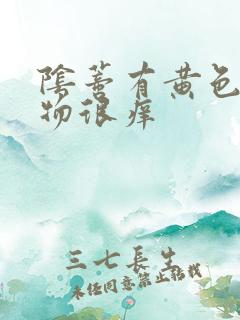 陰蒂有黄色
物很痒
三七長生
未经同意禁止转载